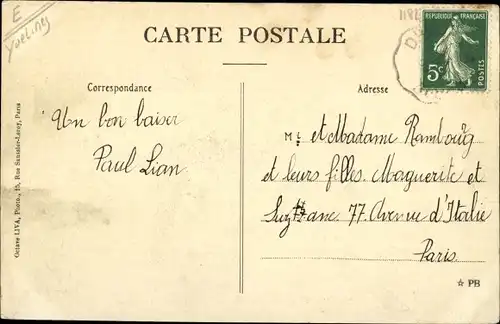 E
Yvelines
1182
CARTE POSTALE
REPUBLIQUE FRANÇAISE
5c
POSTES
Correspondance
Adresse
Un bon baiser
Paul Lian
M. et Madame Rambourg
et leurs filles Marguerite et
Suzanne 77 Avenue d'Italie
Paris
Octave LIVA, Photo., 15, Rue Stanislas-Lassy, Paris
☆ PB